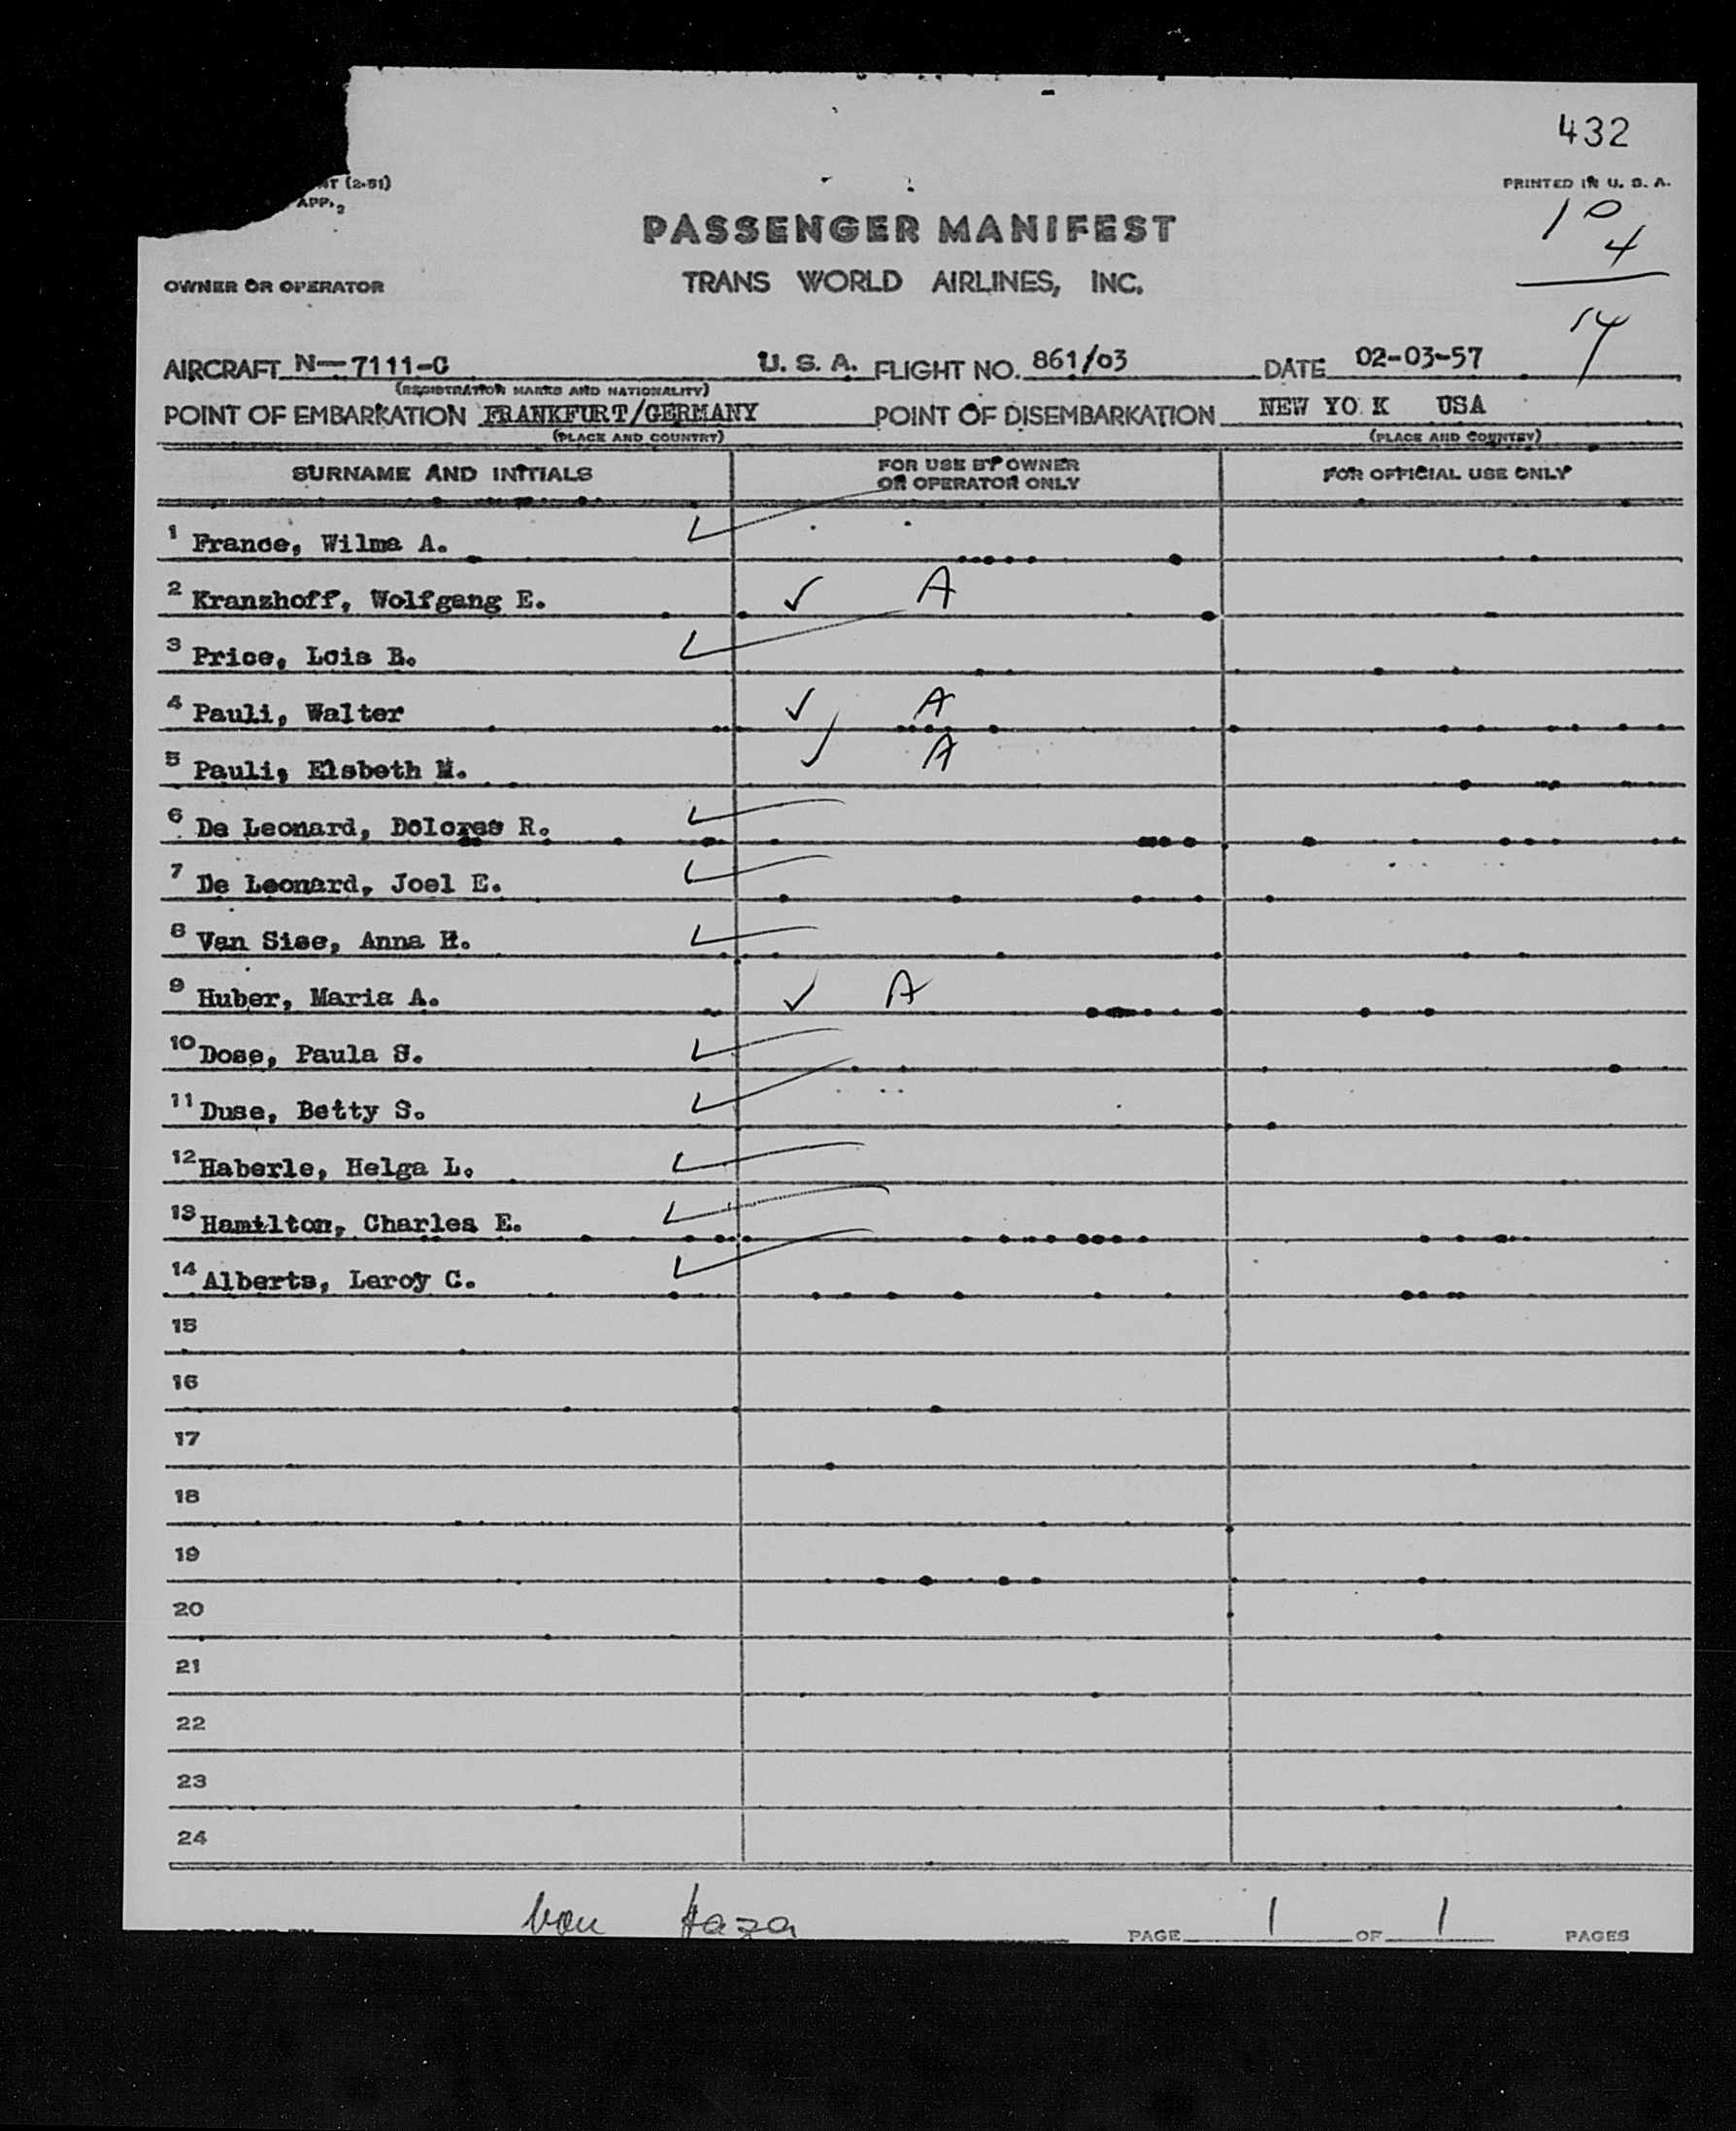 432
NT (2-51)
PRINTED IN U. S. A.
APP.
10
4
PASSENGER MANIFEST
OWNER OR OPERATOR
TRANS WORLD AIRLINES, INC.
14
AIRCRAFT N-7111-C U. S. A. FLIGHT NO. 861/03 DATE 02-03-57
(REGISTRATION MARKS AND NATIONALITY)
POINT OF EMBARKATION FRANKFURT/GERMANY POINT OF DISEMBARKATION NEW YO K USA
(PLACE AND COUNTRY) (PLACE AND COUNTRY)
SURNAME AND INITIALS FOR USE BY OWNER OR OPERATOR ONLY FOR OFFICIAL USE ONLY
1 France, Wilma A. ✓
2 Kranzhoff, Wolfgang E. ✓ A
3 Price, Lois B. ✓
4 Pauli, Walter ✓ A
5 Pauli, Elsbeth M. ✓ A
6 De Leonard, Dolores R. ✓
7 De Leonard, Joel E. ✓
8 Van Sise, Anna H. ✓
9 Huber, Maria A. ✓ A
10 Dose, Paula S. ✓
11 Duse, Betty S. ✓
12 Haberle, Helga L. ✓
13 Hamilton, Charles E. ✓
14 Alberts, Leroy C. ✓
15
16
17
18
19
20
21
22
23
24
von Haza
PAGE 1 OF 1 PAGES